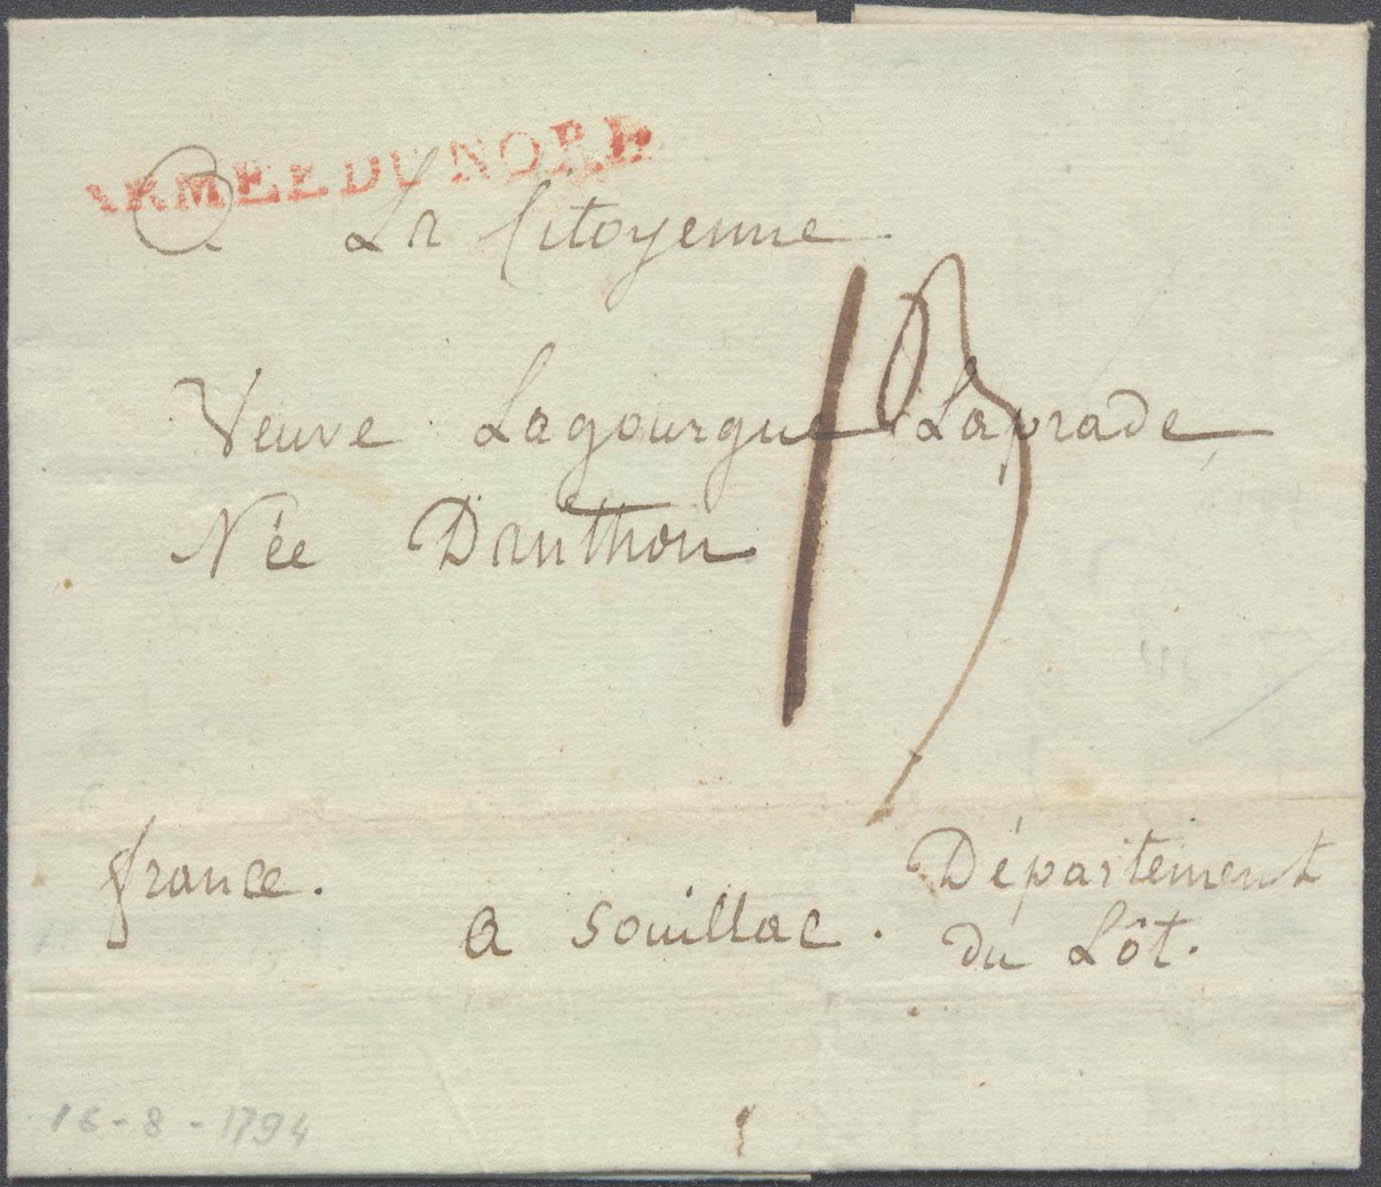 ARMEE DU NORD
A La Citoyenne
Veuve Lagourgue Laprade
Née Druthon
13
france.
Département
a souillac.
du Lôt.
16-8-1794